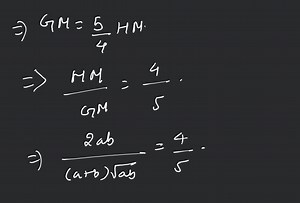 ⇒ GM = 5/4 HM.
⇒ HM/GM = 4/5.
⇒ 2ab/((a+b)√ab) = 4/5.